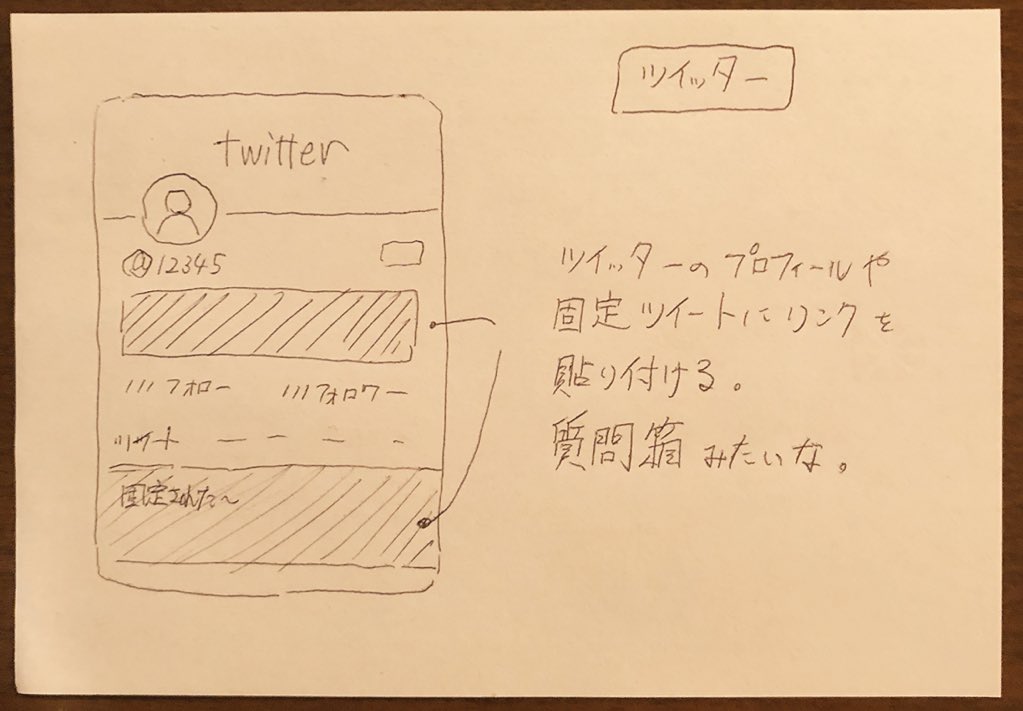 ツイッター
twitter
@12345
111フォロー 111フォロワー
ツイート
固定された〜
ツイッターのプロフィールや
固定ツイートにリンクを
貼り付ける。
質問箱みたいな。